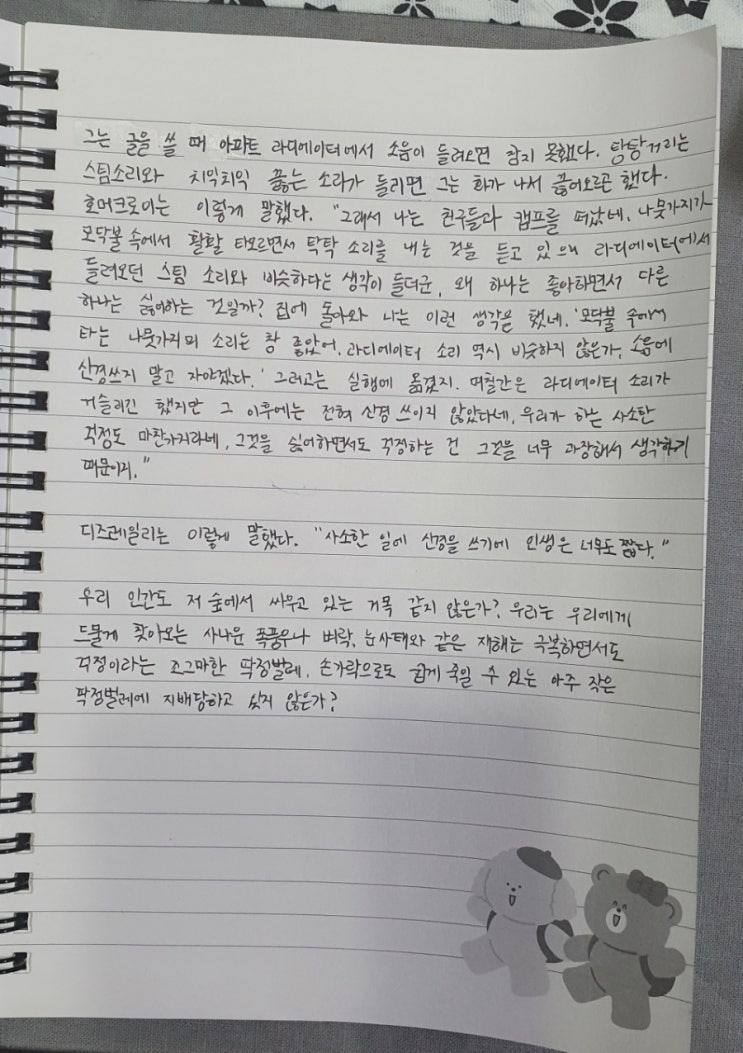 그는 글을 쓸 때 아파트 라디에이터에서 소음이 들려오면 참지 못했다. 탕탕거리는
스팀소리와 치익치익 끓는 소리가 들리면 그는 화가 나서 끓어오르곤 했다.
호머크로이는 이렇게 말했다. "그래서 나는 친구들과 캠프를 떠났네. 나뭇가지가
모닥불 속에서 활활 타오르면서 탁탁 소리를 내는 것을 듣고 있으매 라디에이터에서
들려오던 스팀 소리와 비슷하다는 생각이 들더군. 왜 하나는 좋아하면서 다른
하나는 싫어하는 것일까? 집에 돌아와 나는 이런 생각을 했네. '모닥불 속에서
타는 나뭇가지의 소리는 참 좋았어. 라디에이터 소리 역시 비슷하지 않은가. 소음에
신경쓰지 말고 자야겠다.' 그러고는 실행에 옮겼지. 며칠간은 라디에이터 소리가
거슬리긴 했지만 그 이후에는 전혀 신경 쓰이지 않았다네. 우리가 하는 사소한
걱정도 마찬가지라네. 그것을 싫어하면서도 걱정하는 건 그것을 너무 과장해서 생각하기
때문이지."
디즈레일리는 이렇게 말했다. "사소한 일에 신경을 쓰기에 인생은 너무도 짧다."
우리 인간도 저 숲에서 싸우고 있는 거목 같지 않은가? 우리는 우리에게
드물게 찾아오는 사나운 폭풍우나 벼락, 눈사태와 같은 재해는 극복하면서도
걱정이라는 조그마한 딱정벌레, 손가락으로도 쉽게 죽일 수 있는 아주 작은
딱정벌레에 지배당하고 있지 않은가?